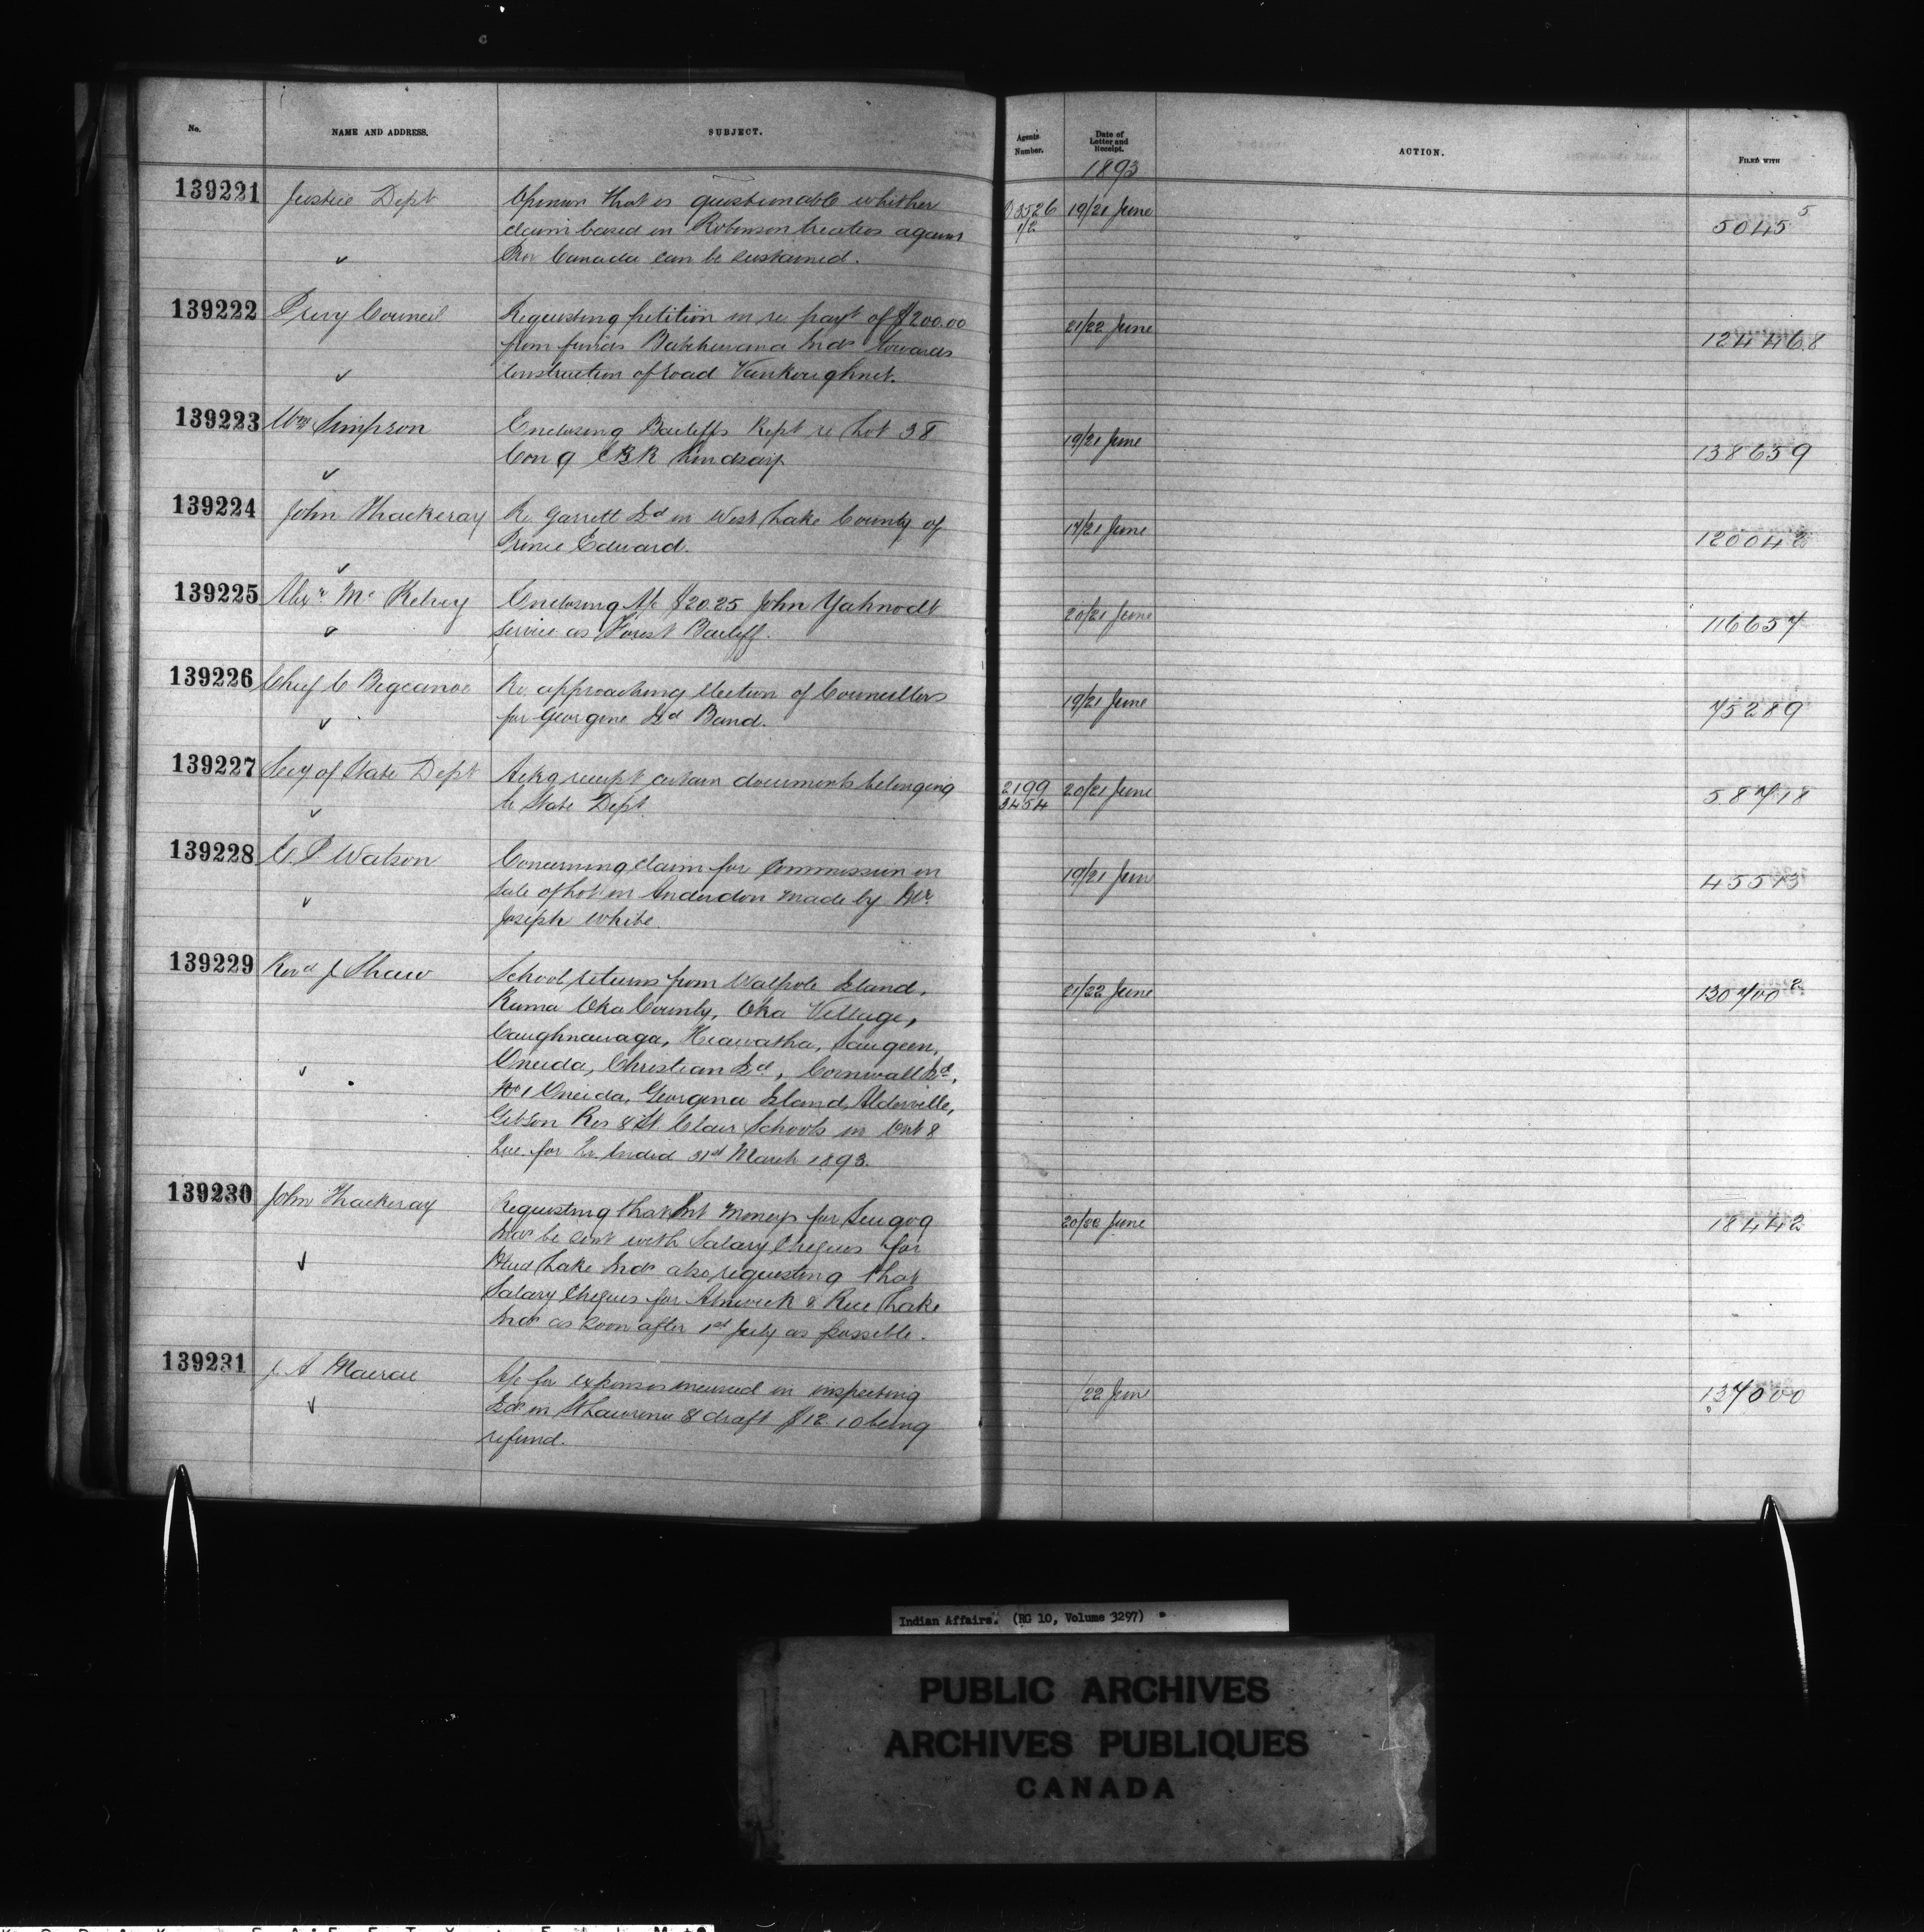 No.
NAME AND ADDRESS.
SUBJECT.
Agents Number.
Date of Letter and Receipt.
ACTION.
FILED WITH
1893
139221 Justice Dept Opinion that is questionable whether 19/21 June 5045 5
claim based on Robinson treaties against
Prov Canada can be sustained.
139222 Privy Council Requesting petition in re payt of $200.00 21/22 June 124468
from funds Batchewana Inds towards
construction of road Vankoughnet.
139223 Wm Simpson Enclosing Bailiffs Rept re Lot 38 19/21 June 138659
Con 9 EBR Lindsay
139224 John Thackeray Re Garrett Isd in West Lake County of 17/21 June 120042
Prince Edward.
139225 Alexr McKelvey Enclosing A/c $20.25 John Yahnodt 20/21 June 116657
service as Forest Bailiff.
139226 Chief C Bigcanoe Re approaching election of Councillors 19/21 June 75289
for Georgine Isd Band.
139227 Secy of State Dept Ackg receipt certain documents belonging 2199 20/21 June 58718
to State Dept. 3454
139228 C. P Watson Concerning claim for Commission on 19/21 June 45513
sale of lot in Anderdon made by
Joseph White.
139229 Revd J Shaw School returns from Walpole Island, 21/22 June 130700 2
Rama Oka County, Oka Village,
Caughnawaga, Hiawatha, Saugeen,
Oneida, Christian Isd, Cornwall Isd,
No 1 Oneida, Georgina Island, Alderville,
Gibson Res & St. Clair Schools in Ont &
Que. for Qr. Ended 31st March 1893.
139230 John Thackeray Requesting that Int Moneys for Scugog 20/22 June 18442
Inds be sent with Salary Cheques for
Mud Lake Inds also requesting that
Salary Cheques for Alnwick & Rice Lake
Inds as soon after 1st July as possible.
139231 J. A Macrae A/c for expenses incurred in inspecting /22 June 137000
Isds in St Lawrence & draft $12.10 being
refund.
Indian Affairs. (RG 10, Volume 3297)
PUBLIC ARCHIVES
ARCHIVES PUBLIQUES
CANADA